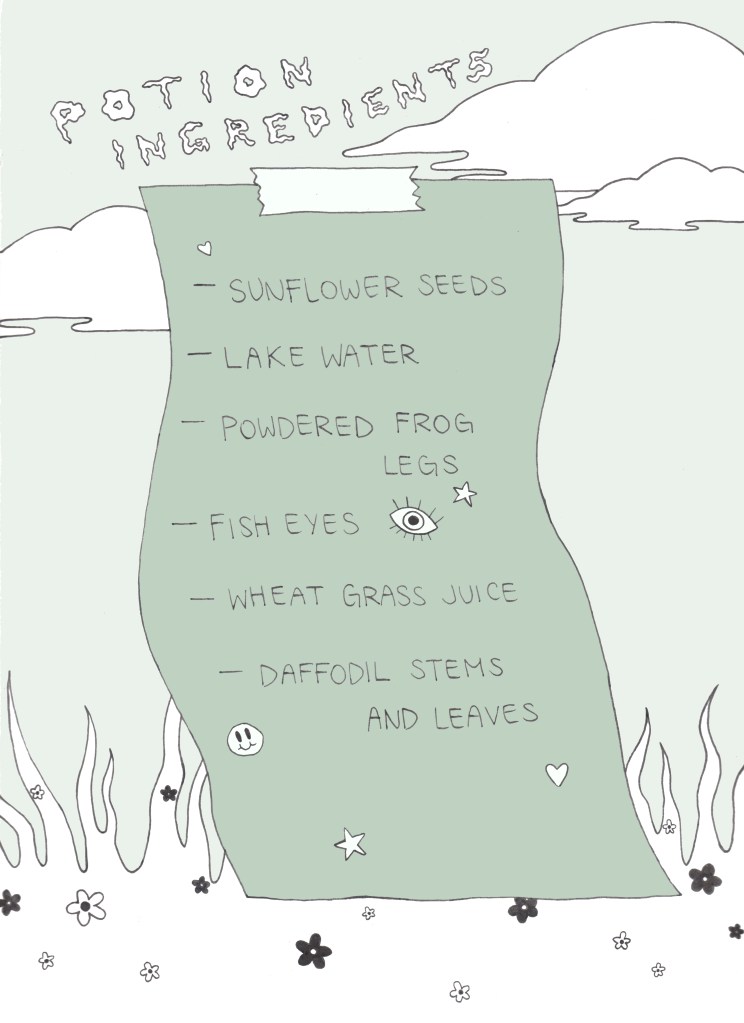 POTION
INGREDIENTS
- SUNFLOWER SEEDS
- LAKE WATER
- POWDERED FROG
LEGS
- FISH EYES
- WHEAT GRASS JUICE
- DAFFODIL STEMS
AND LEAVES